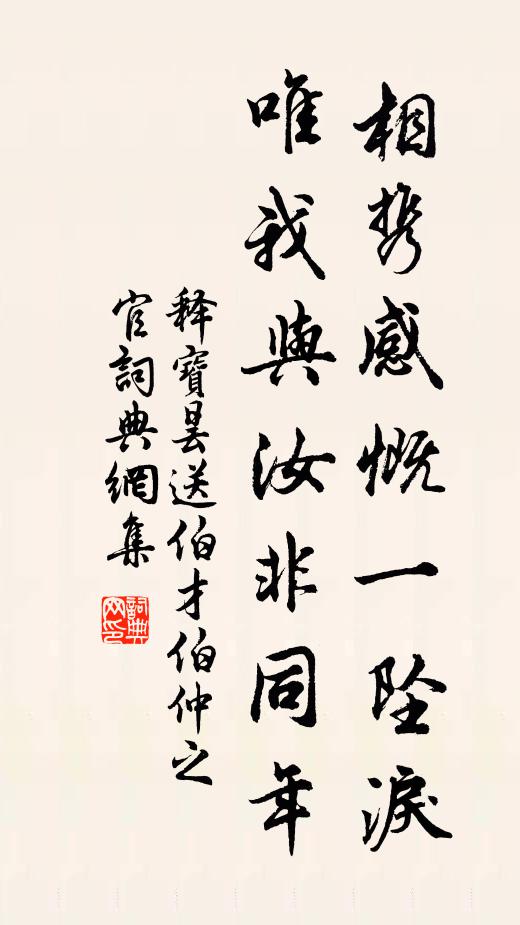 相携感慨一坠淚
唯我與汝非同年
释寶曇送伯才伯仲之
官詞典網集
詞典
网印